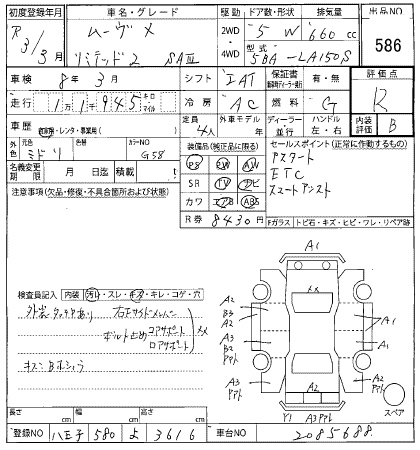 初度登録年月 車名・グレード 駆動 ドア数・形状 排気量 出品NO
R3/3月 ムーヴ 2WD 4WD 5 W 660 cc 586
リミテッド2 SAⅢ 型式 5BA-LA150S
車検 8年3月 シフト IAT 保証書 有・無 評価点
走行 11945 キロ マイル 冷房 AC 燃料 G R
車歴 自家用・レンタ・事業用 定員 4人 外車モデル 年 ディーラー 並行 ハンドル 左・右 内装評価 B
外色 元色 ミドリ 色替 カラーNO G58
装備品(純正品に限る) セールスポイント(正常に作動するもの)
名義変更期限 月 日 積載 t
PS PW AW
アスマート
SR TV ナビ
ETC
カワ エアB ABS
スマートアシスト
R券 8430円
Fガラス トビ石・キズ・ヒビ・ワレ・リペア跡
注意事項(欠品・修復・不具合箇所および状態)
検査員記入 内装 汚れ・スレ・キズ・キレ・コゲ・穴
外装 タッチアあり 右Fサイドメンバー
ボルト止め コアサポート ロアサポート XX
A1
XX
A2
B3
A2
A3
B2
A2
A3
A1
A1
A2
Y1
スペア
長さ cm 幅 cm 高さ cm
登録NO 八王子 580 よ 3616 車台NO 2085688